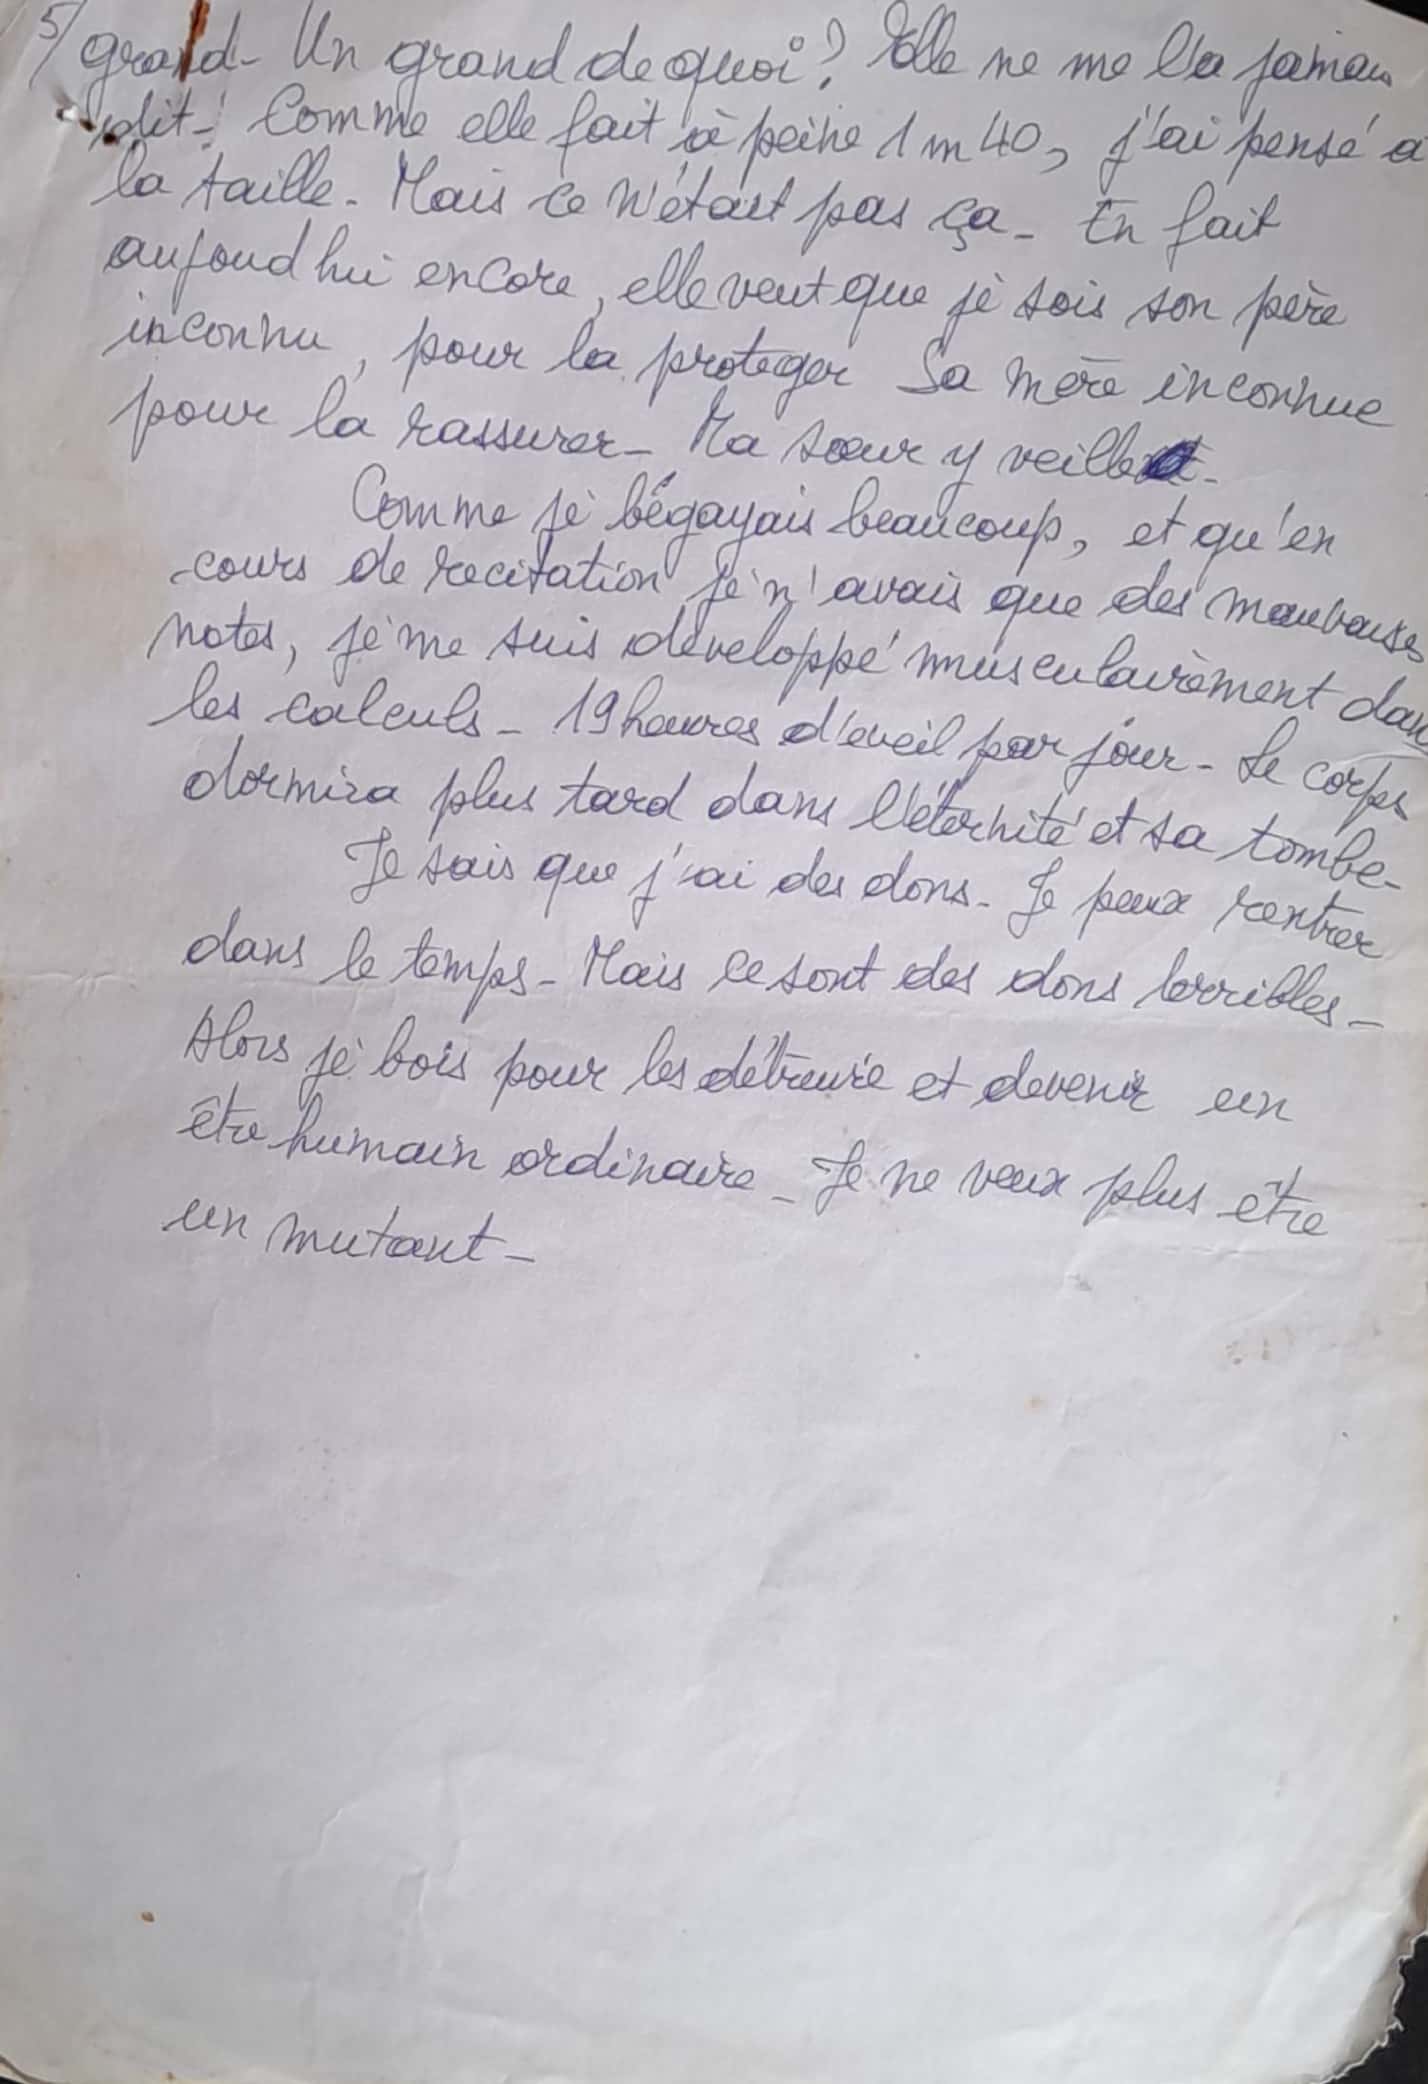 5/ grand - Un grand de quoi ? Elle ne me l'a jamais
dit - ! Comme elle fait à peine 1 m 40, j'ai pensé à
la taille - Mais ce n'était pas ça - En fait
aujoud hui encore, elle veut que je sois son père
inconnu, pour la proteger Sa mère inconnue
pour la rassurer - Ma sœur y veille -
Comme je bégayais beaucoup, et qu'en
cours de recitation je n'avais que des mauvaises
notes, je me suis developpé musculairement dans
les calculs - 19 heures d'eveil par jour - Le corps
dormira plus tard dans l'éternité et sa tombe -
Je sais que j'ai des dons - Je peux rentrer
dans le temps - Mais ce sont des dons terribles -
Alors je bois pour les détruire et devenir un
être humain ordinaire - Je ne veux plus être
un mutant -